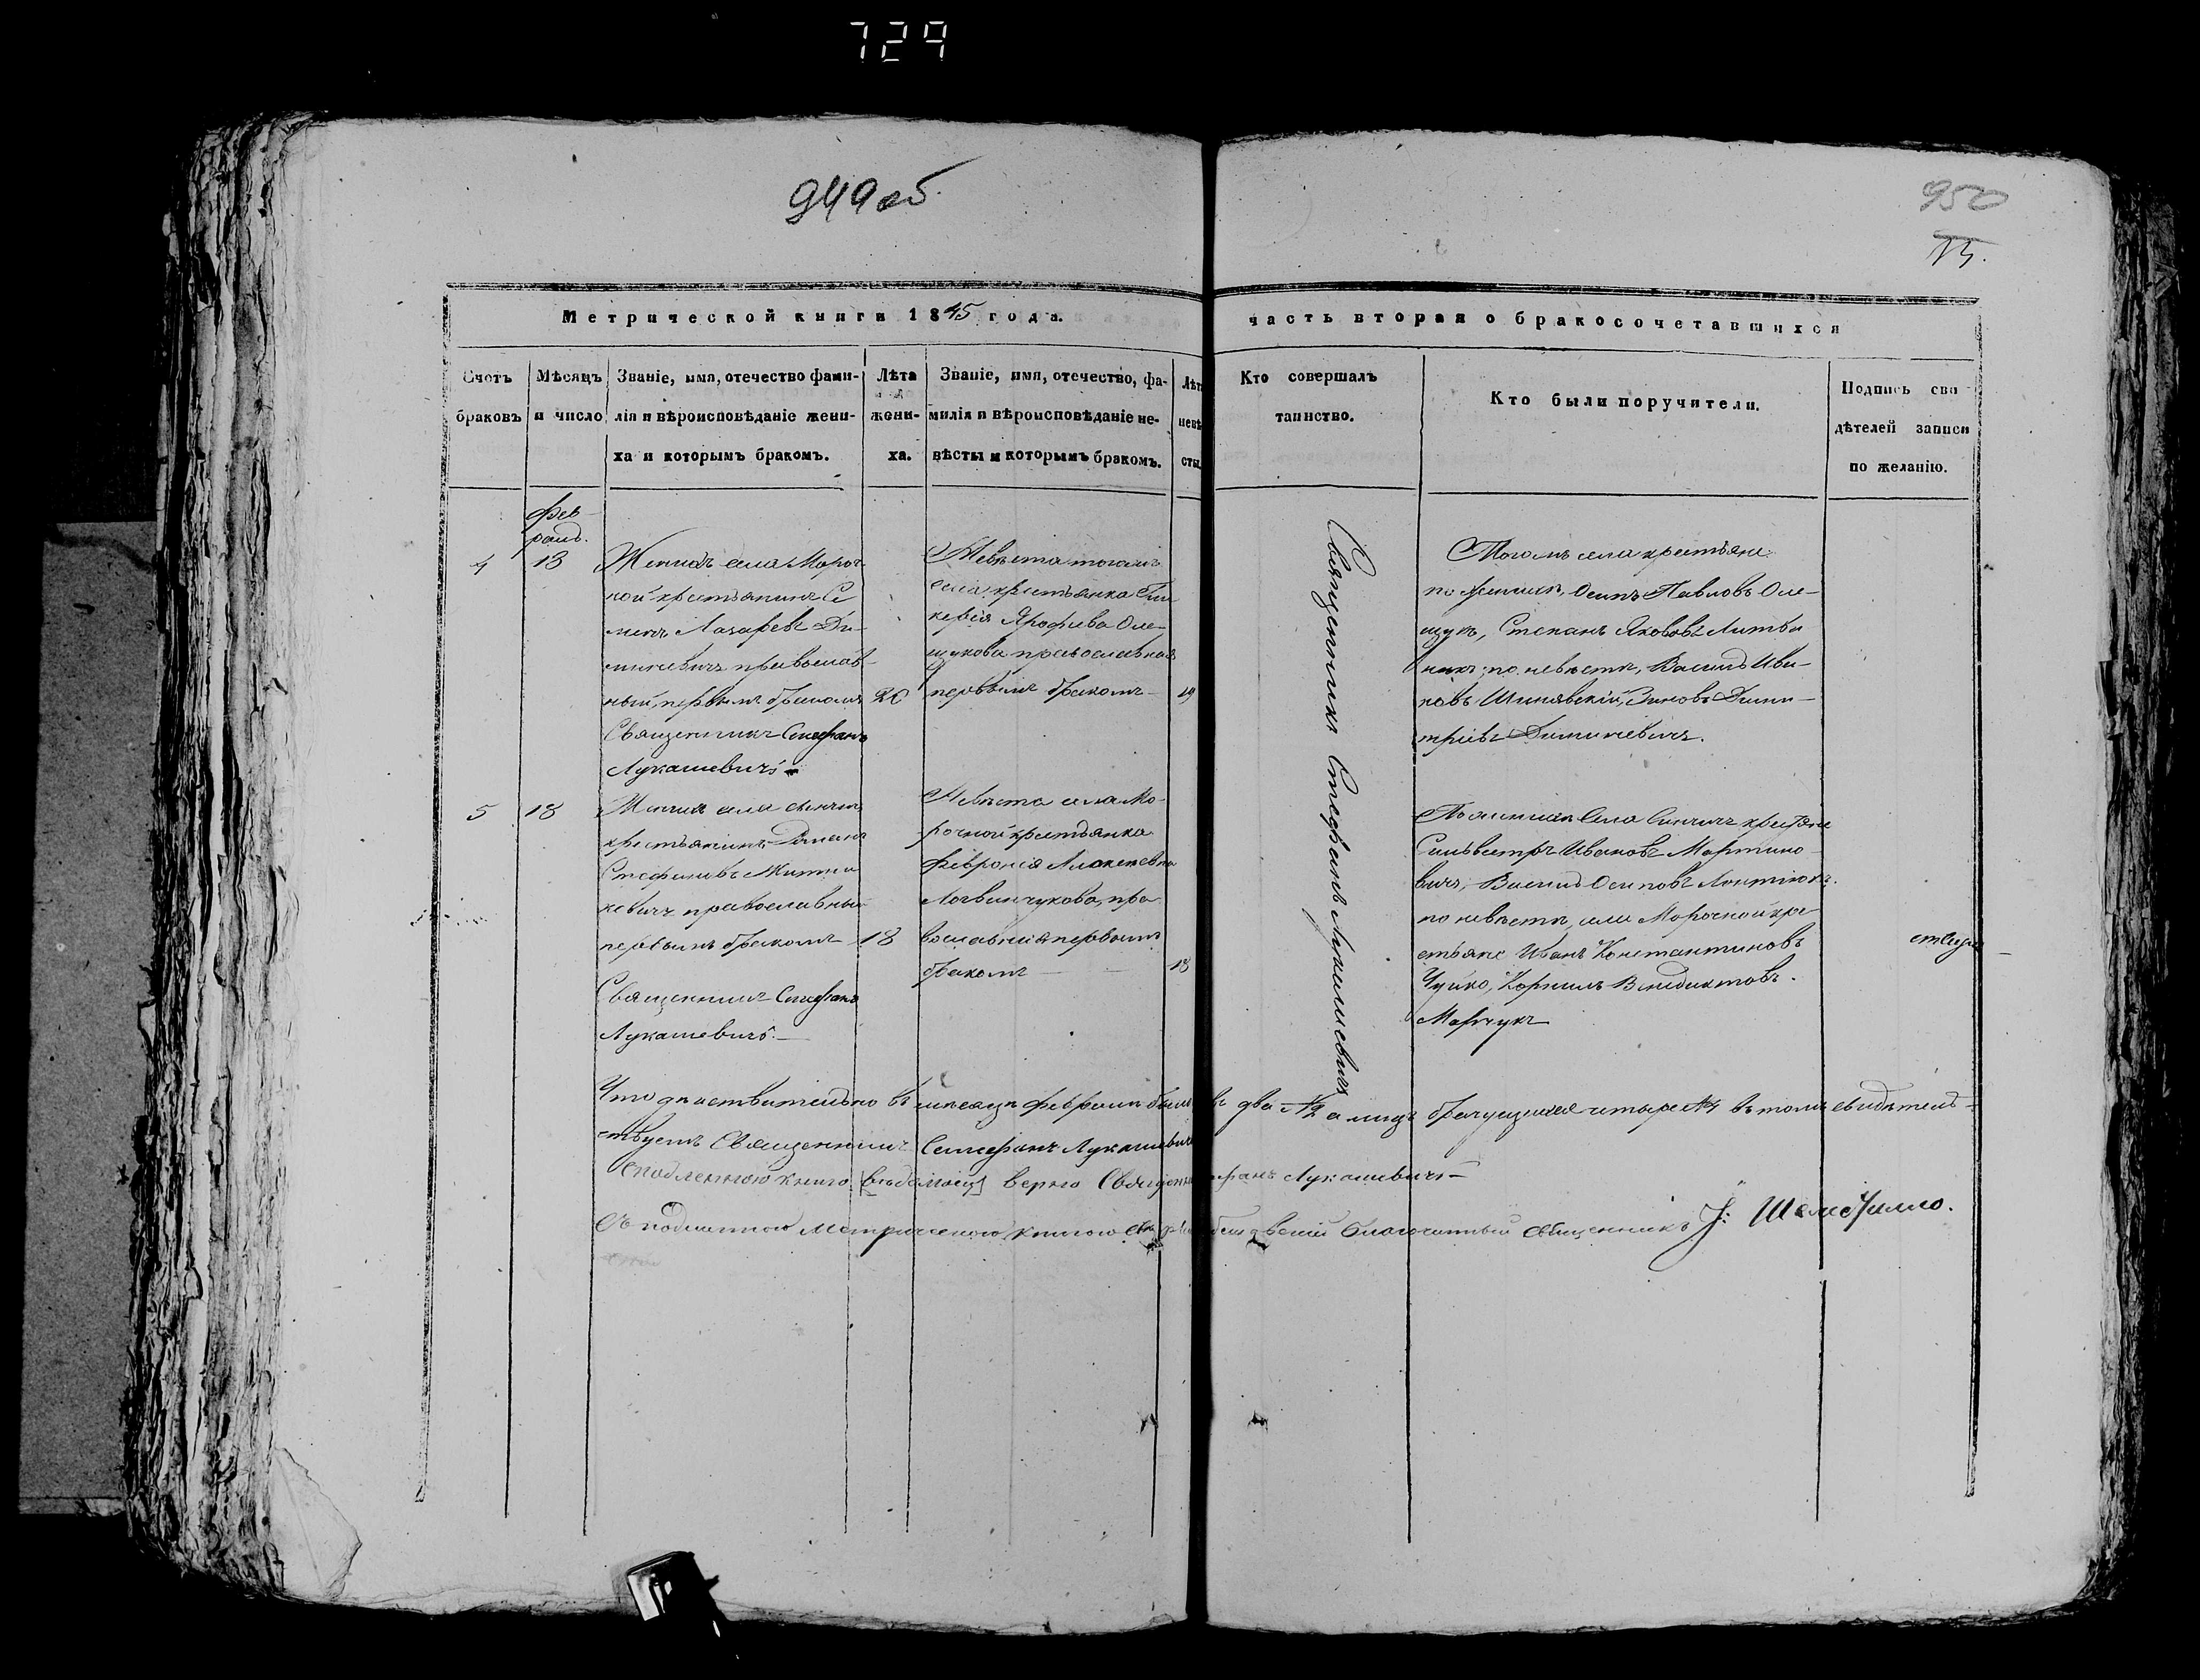 729
949 об.
950
Метрической книги 1845 года.
часть вторая о бракосочетавшихся
Счетъ
браковъ
Мѣсяцъ
и число
Званіе, имя, отечество фами-
лія и вѣроисповѣданіе жени-
ха и которымъ бракомъ.
Лѣта
жени-
ха.
Званіе, имя, отечество, фа-
милія и вѣроисповѣданіе не-
вѣсты и которымъ бракомъ.
Лѣта
невѣ
сты.
Кто совершалъ
таинство.
Кто были поручители.
Подпись сви-
дѣтелей записи
по желанію.
4
Фев-
рал.
13
Женихъ села Мороч-
ной крестьянинъ Се
менъ Лазаревъ Ди-
миневичъ православ-
ный, первымъ бракомъ
Священникъ Стефанъ
Лукашевичъ
20
Невѣста тогожъ
села крестьянка Гли
керія Ярофиева Оле-
щукова православная
первымъ бракомъ
19
Священникъ Стефанъ Лукашевичъ
Тогожъ села крестьяне
по женихѣ, Осипъ Павловъ Оле-
щукъ, Степанъ Яковъ Литви
никъ; по невѣстѣ, Василь Ива-
новъ Шинявскій, Зиновъ Дими-
тріевъ Диминіевичъ.
5
18
Женихъ села
крестьянинъ Романъ
Стефановъ
кевичъ православный
первымъ бракомъ
Священникъ Стефанъ
Лукашевичъ.
18
Невѣста села Мо-
рочной крестьянка
Февронія Алексеевна
Логвинчукова, пра
вославная первымъ
бракомъ
18
По женихѣ села крестьяне
Сильвестръ Ивановъ Мартино-
вичъ, Василь Осиповъ
по невѣстѣ, села Морочной кре
стьяне Иванъ Константиновъ
Чуйко, Корнилъ Венидиктовъ
Марчукъ
Что дѣйствительно въ мѣсяцѣ февралѣ браковъ два №2 а лицъ брачущихся четыре №4 въ томъ свидѣтель-
ствуетъ Священникъ Стефанъ Лукашевичъ
верно Священ Лукашевичъ
Съ подлинною метрическою книгою благочинный священникъ